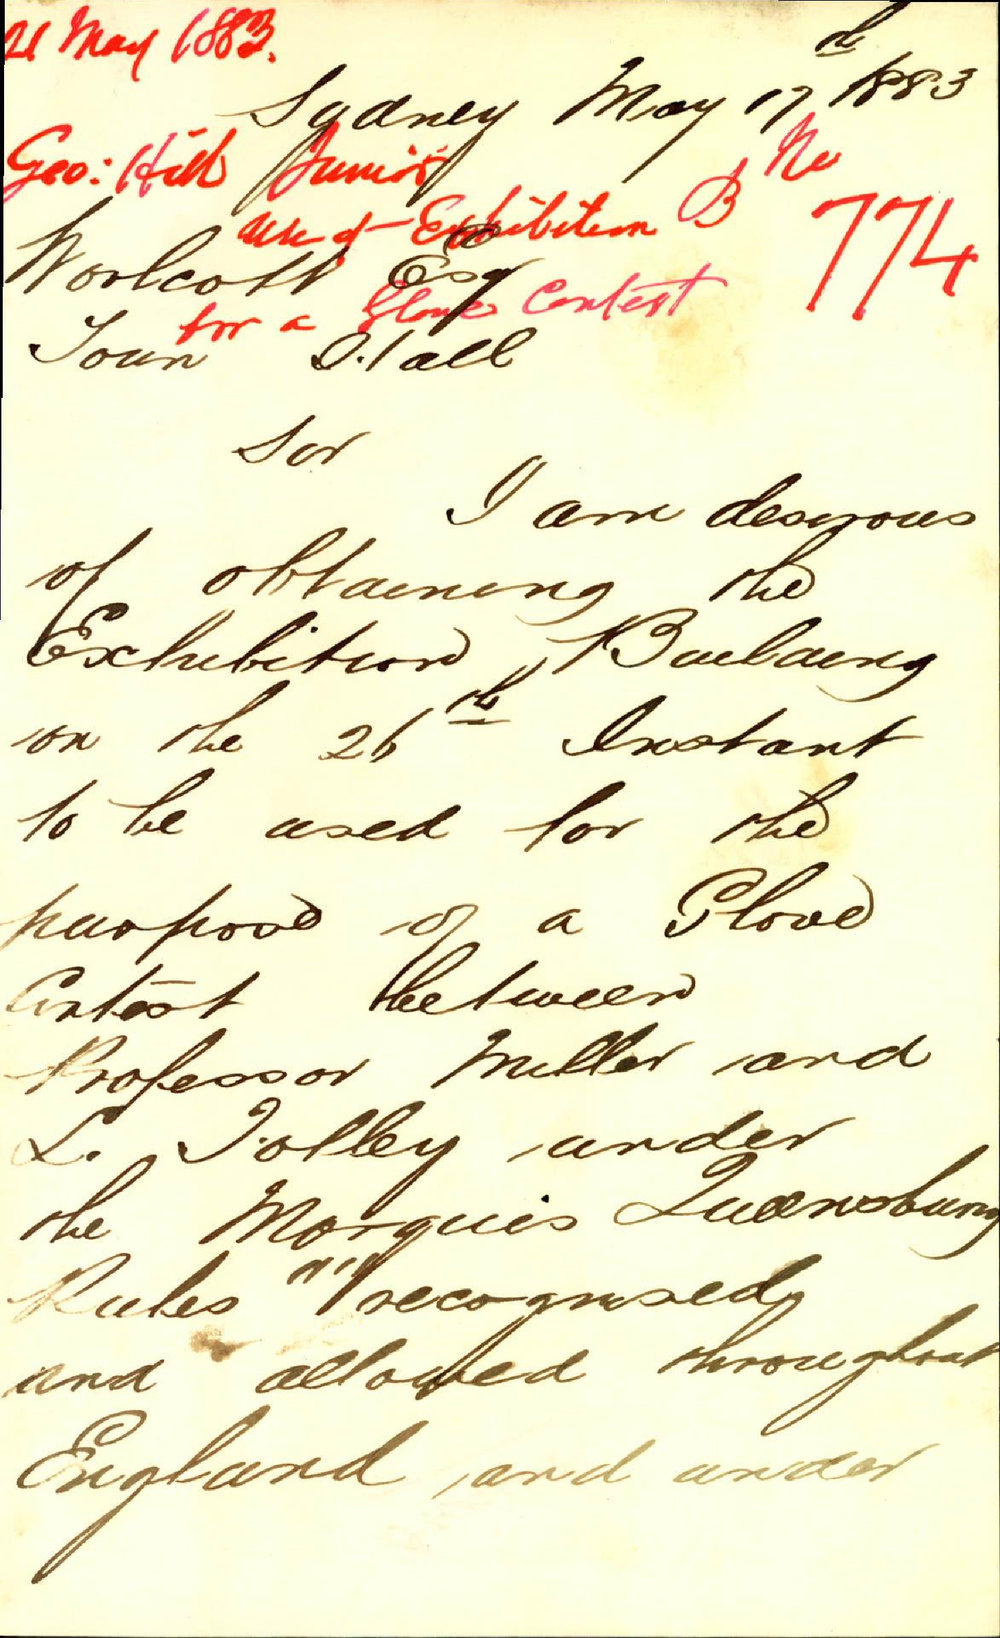 21 May 1883.
Sydney May 17th 1883
Geo: Hill Junior No
use of Exhibition B 774
Woolcott Esqr
for a Glove Contest
Town Hall
Sir
I am desirous
of obtaining the
Exhibition Building
on the 26th Instant
to be used for the
purpose of a Glove
Contest between
Professor Miller and
L. Folley under
the Marquis Queensbury
Rules recognised
and allowed throughout
England and under